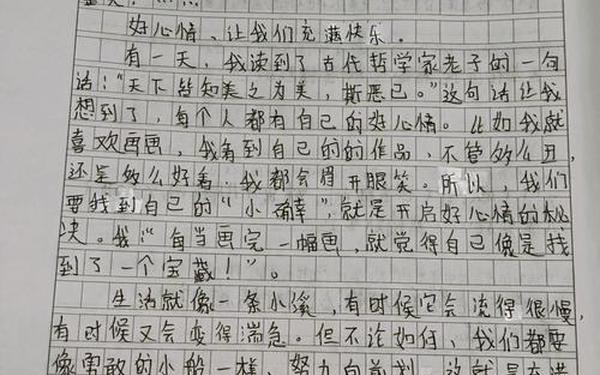 好心情，让我们充满快乐。
有一天，我读到了古代哲学家老子的一句
话：“天下皆知美之为美，斯恶已。”这句话让我
想到了，每个人都有自己的好心情。比如我就
喜欢画画，我看到自己的的作品，不管多么丑，
还是多么好看，我都会眉开眼笑。所以，我们
要找到自己的“小确幸”，就是开启好心情的秘
诀。我：“每当画完一幅画，就觉得自己像是找
到了一个宝藏！”。
生活就像一条小溪，有时候它会流得很慢，
有时候又会变得湍急。但不论如何，我们都要
像勇敢的小船一样，努力向前划，这就是充满